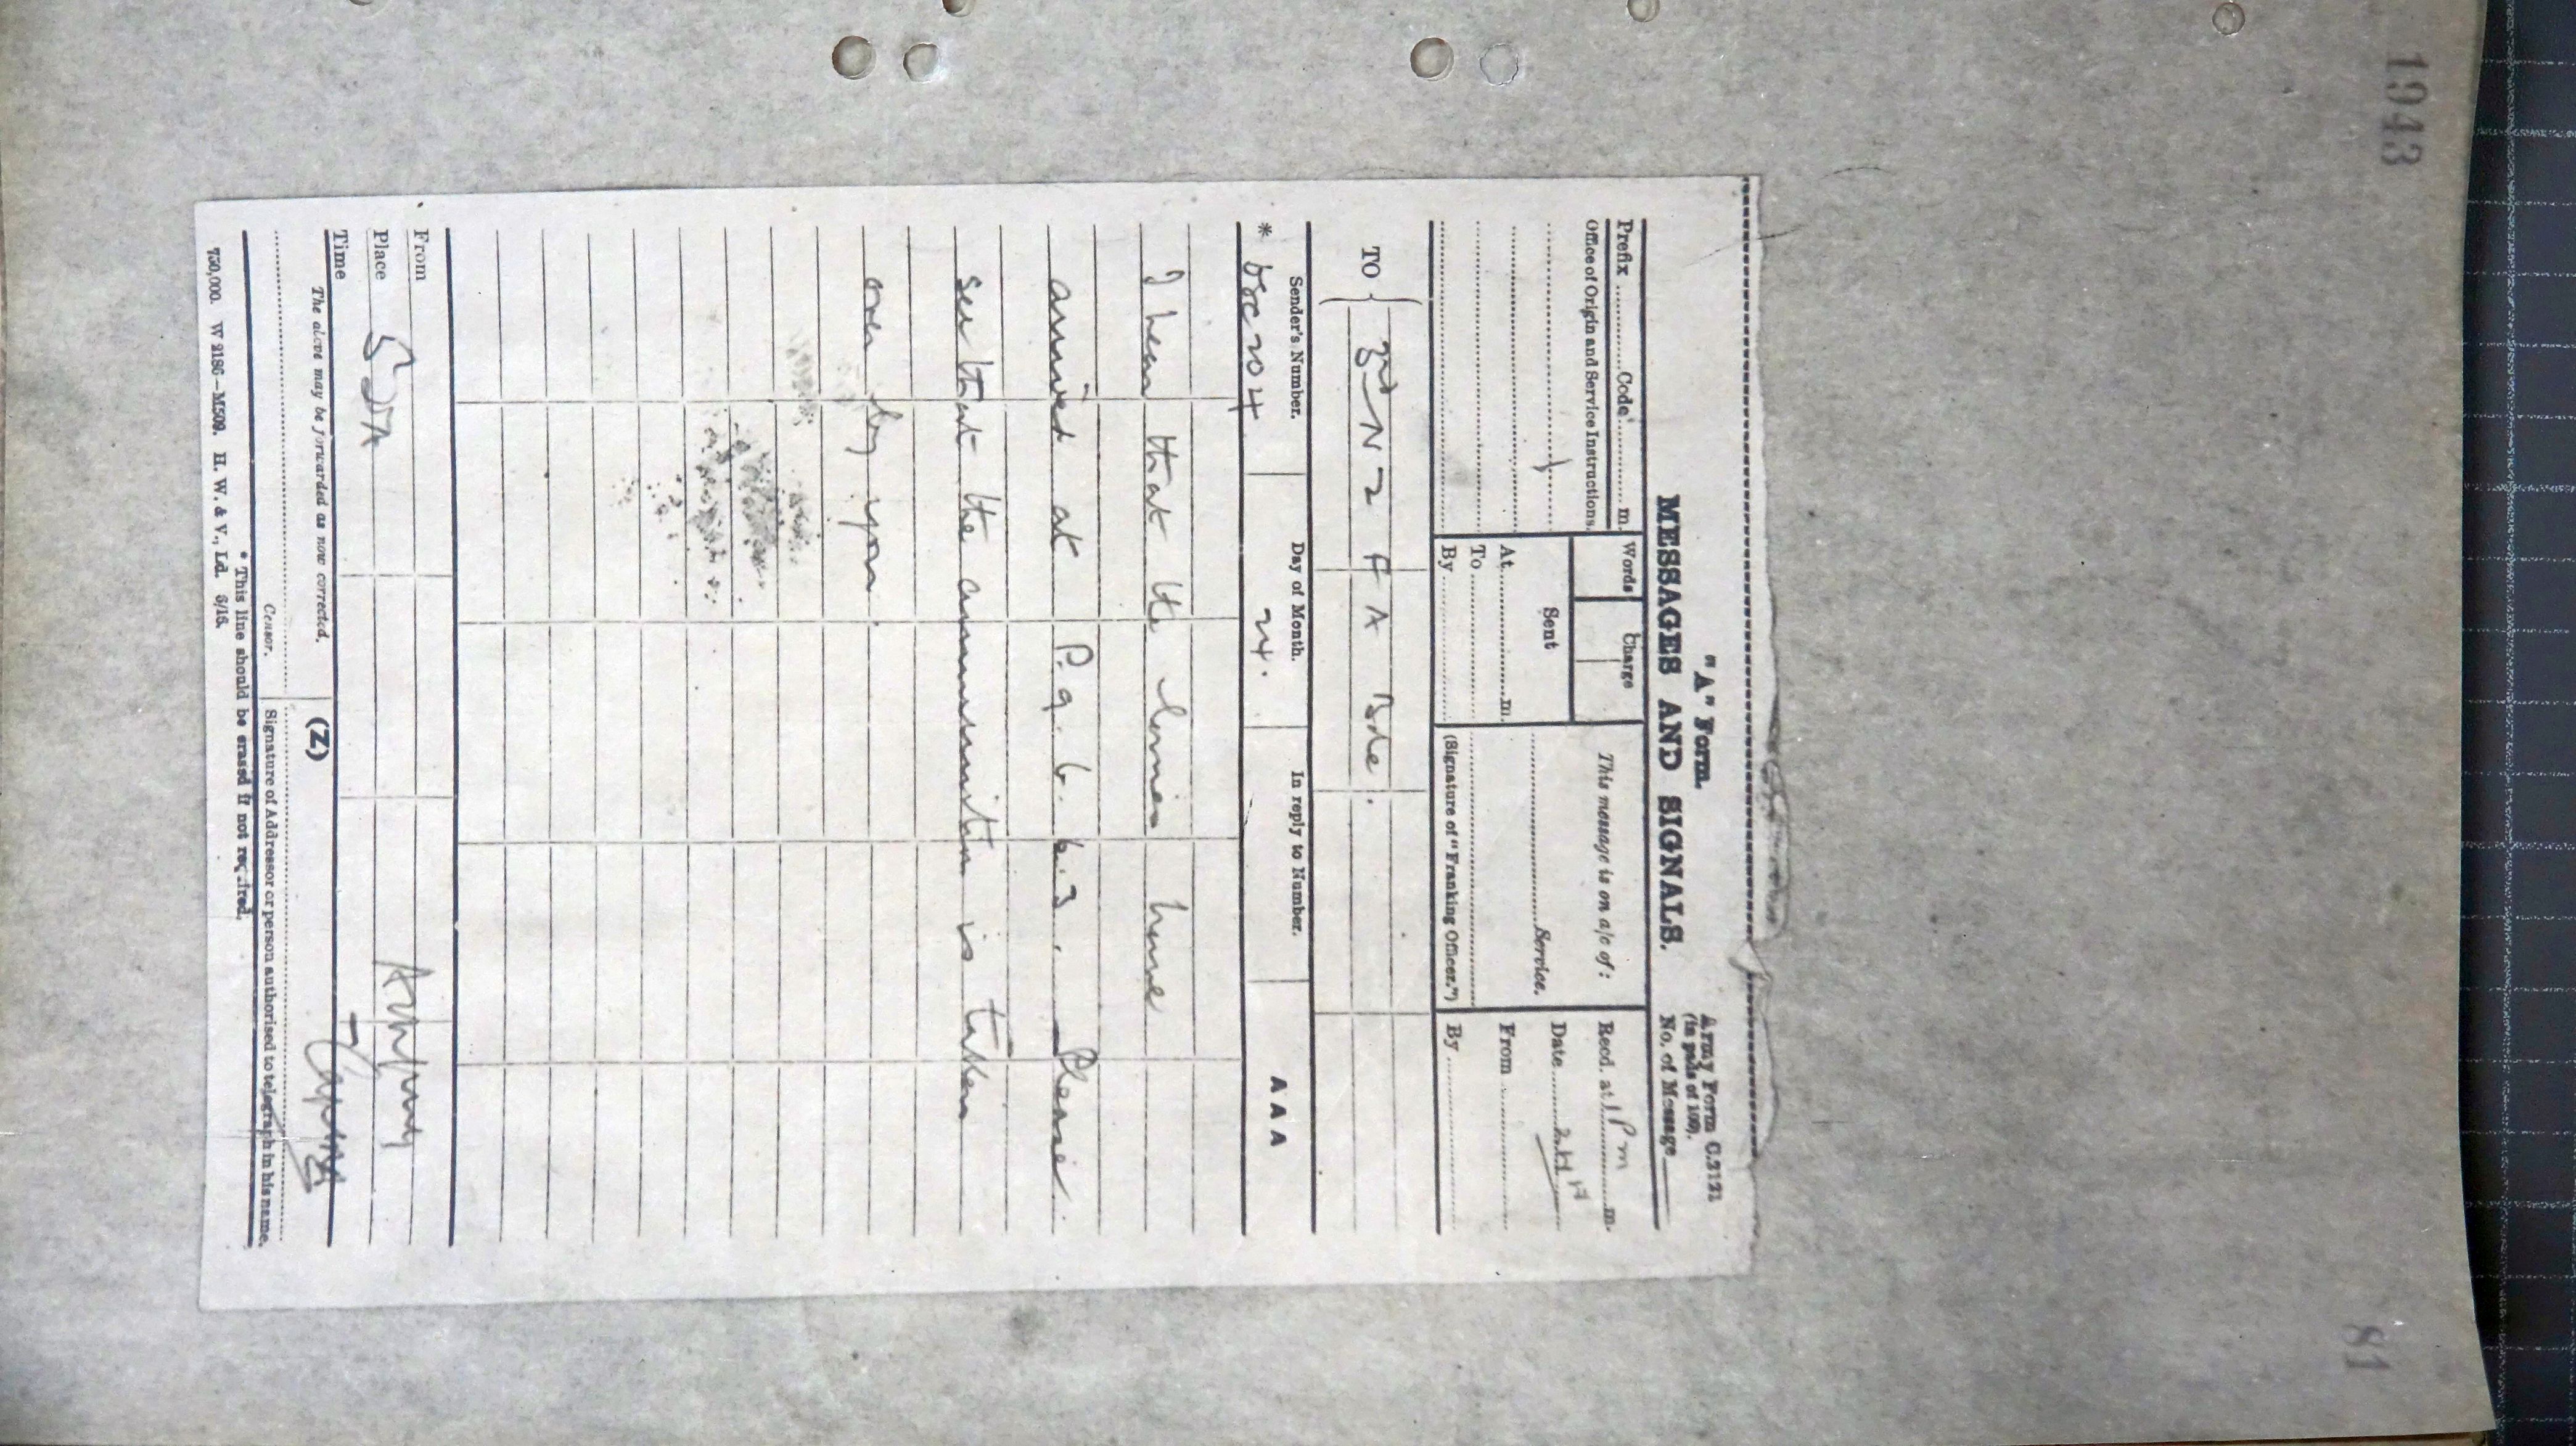 1943
81
"A" Form.
Army Form C.2121
(in pads of 100).
MESSAGES AND SIGNALS.
No. of Message
Prefix ............ Code ............ m.
Words
Charge
This message is on a/c of:
Recd. at 1 P m ......m.
Office of Origin and Service Instructions.
Sent
............Service.
Date
At............m.
From
To
By
(Signature of "Franking Officer.")
By
TO
3rd N Z F A Bde.
Sender's Number.
Day of Month.
In reply to Number.
AAA
* 204
24.
I hear that the lorries have
arrived at P. 9. b. 6.3. Please
see that the ammunition is taken
over by you.
From
Place
5 DA
Time
The above may be forwarded as now corrected.
(Z)
Censor.
Signature of Addressor or person authorised to telegraph in his name.
* This line should be erased if not required.
750,000. W 2186—M509. H. W. & V., Ld. 6/16.